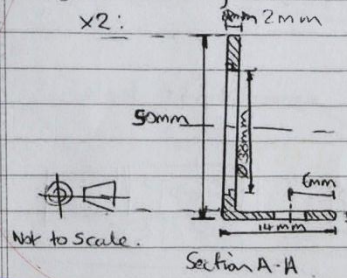 x2:
2mm
50mm
Ø38mm
6mm
14mm
Not to Scale.
Section A-A